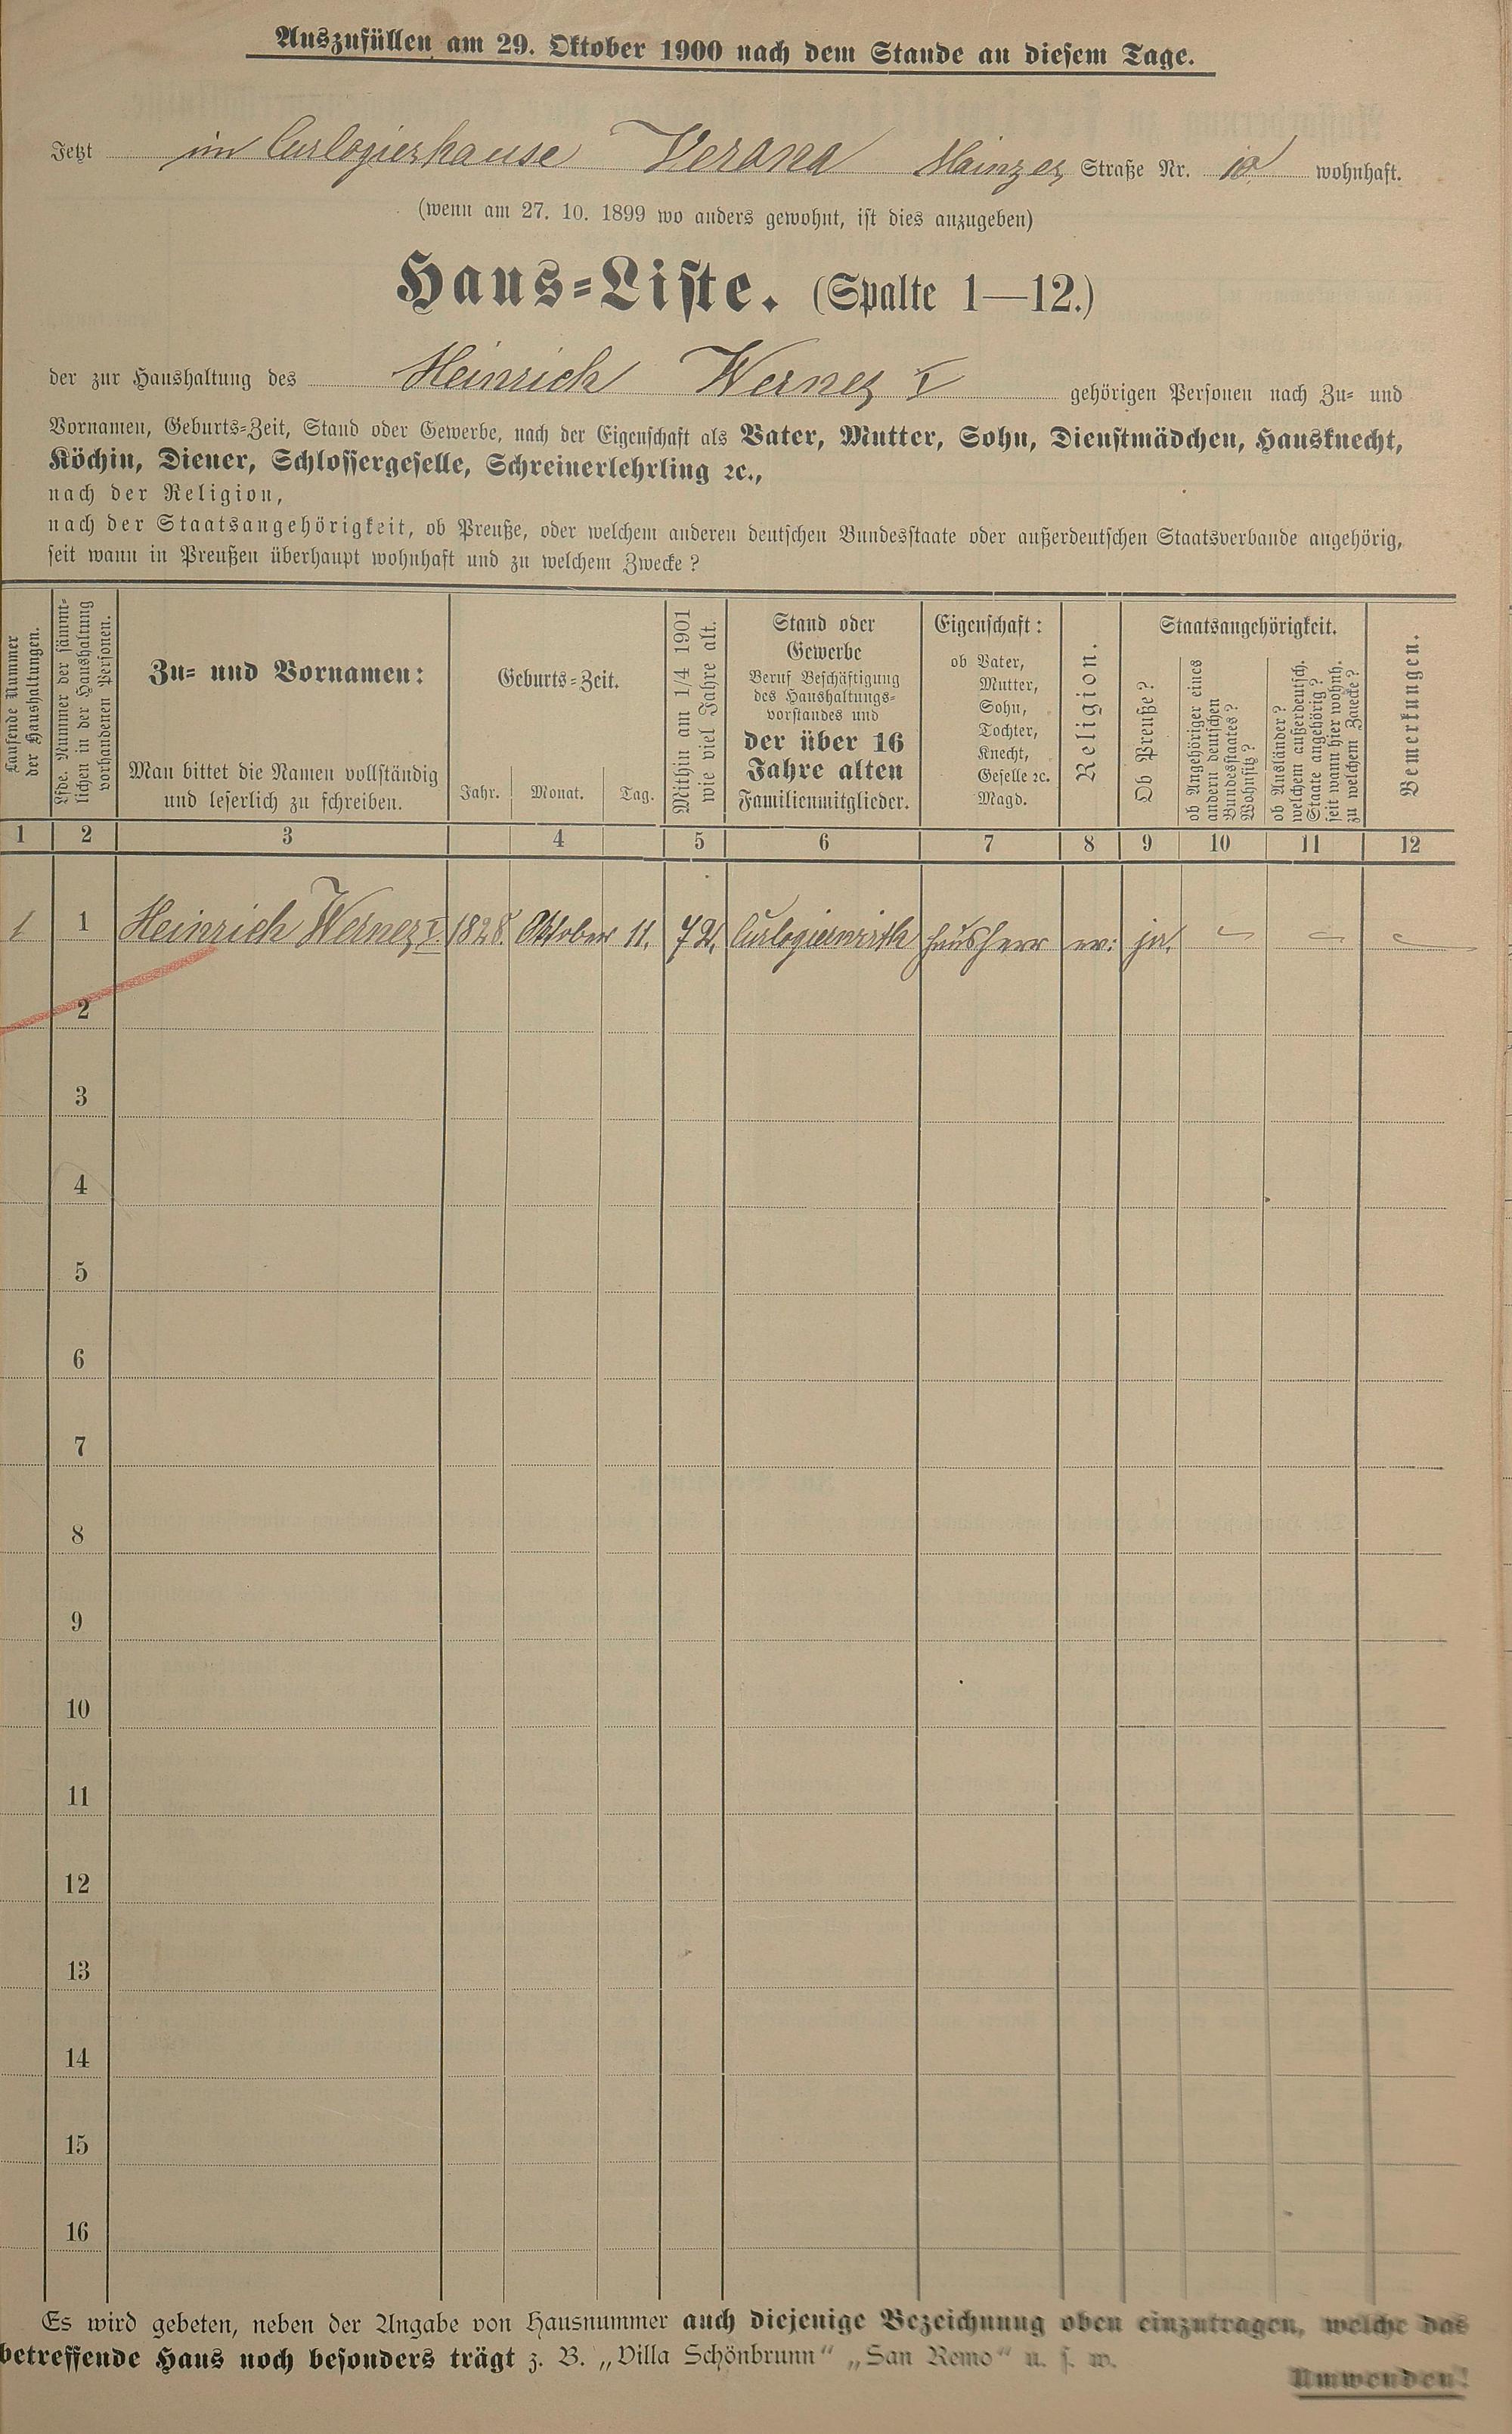 Auszufüllen am 29. Oktober 1900 nach dem Stande an diesem Tage.
Jetzt im Curlogierhause Verona Mainzer Straße Nr. 10 wohnhaft.
(wenn am 27. 10. 1899 wo anders gewohnt, ist dies anzugeben)
Haus-Liste. (Spalte 1—12.)
der zur Haushaltung des Heinrich Werner I gehörigen Personen nach Zu- und
Vornamen, Geburts-Zeit, Stand oder Gewerbe, nach der Eigenschaft als Vater, Mutter, Sohn, Dienstmädchen, Hausknecht,
Köchin, Diener, Schlossergeselle, Schreinerlehrling ꝛc.,
nach der Religion,
nach der Staatsangehörigkeit, ob Preuße, oder welchem anderen deutschen Bundesstaate oder außerdeutschen Staatsverbande angehörig,
seit wann in Preußen überhaupt wohnhaft und zu welchem Zwecke?
Laufende Nummer
der Haushaltungen.
Lfde. Nummer der sämmt-
lichen in der Haushaltung
vorhandenen Personen.
Zu- und Vornamen:
Man bittet die Namen vollständig
und leserlich zu schreiben.
Geburts-Zeit.
Jahr. Monat. Tag.
Mithin am 1/4 1901
wie viel Jahre alt.
Stand oder
Gewerbe
Beruf Beschäftigung
des Haushaltungs-
vorstandes und
der über 16
Jahre alten
Familienmitglieder.
Eigenschaft:
ob Vater,
Mutter,
Sohn,
Tochter,
Knecht,
Geselle ꝛc.
Magd.
Religion.
Staatsangehörigkeit.
Ob Preuße?
ob Angehöriger eines
andern deutschen
Bundesstaates?
Wohnsitz?
ob Ausländer?
welchem außerdeutsch.
Staate angehörig?
seit wann hier wohnh.
zu welchem Zwecke?
Bemerkungen.
1 2 3 4 5 6 7 8 9 10 11 12
1 1 Heinrich Werner I. 1828. Oktober 11. 72. Curlogierwirth Hausherr ev: ja.
2
3
4
5
6
7
8
9
10
11
12
13
14
15
16
Es wird gebeten, neben der Angabe von Hausnummer auch diejenige Bezeichnung oben einzutragen, welche das
betreffende Haus noch besonders trägt z. B. „Villa Schönbrunn“ „San Remo“ u. s. w.
Umwenden!